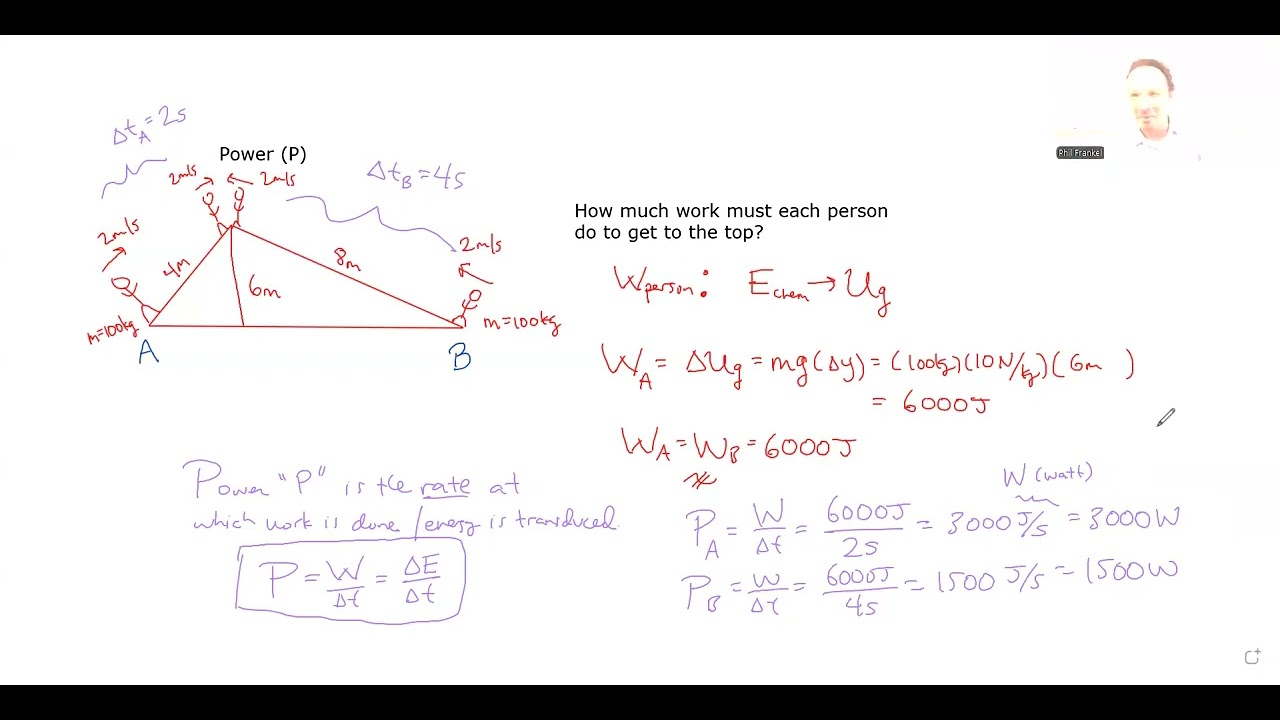 Δt_A = 2s
Power (P)
Δt_B = 4s
2m/s
2m/s
2m/s
2m/s
4m
8m
6m
m=100kg
m=100kg
A
B
Phil Frankel
How much work must each person
do to get to the top?
W_person: E_chem → U_g
W_A = ΔU_g = mg(Δy) = (100kg)(10N/kg)(6m)
= 6000J
W_A = W_B = 6000J
Power "P" is the rate at
which work is done / energy is transduced.
P = W/Δt = ΔE/Δt
W (watt)
P_A = W/Δt = 6000J/2s = 3000 J/s = 3000W
P_B = W/Δt = 6000J/4s = 1500 J/s = 1500W